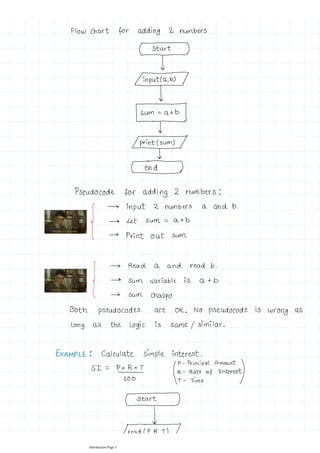 Flow chart for adding 2 numbers.
Start
input(a,b)
sum = a+b
print(sum)
end
Pseudocode for adding 2 numbers:
→ Input 2 numbers a and b.
→ Let sum = a+b
→ Print out sum
→ Read a and read b.
→ sum variable is a + b
→ sum chaapo
Both pseudocodes are OK. No pseudocode is wrong as
long as the logic is same / similar.
EXAMPLE: Calculate simple interest.
SI = P×R×T
100
P - Principal Amount
R - Rate of Interest
T - Time
Start
read(P R T)
Introduction Page 3